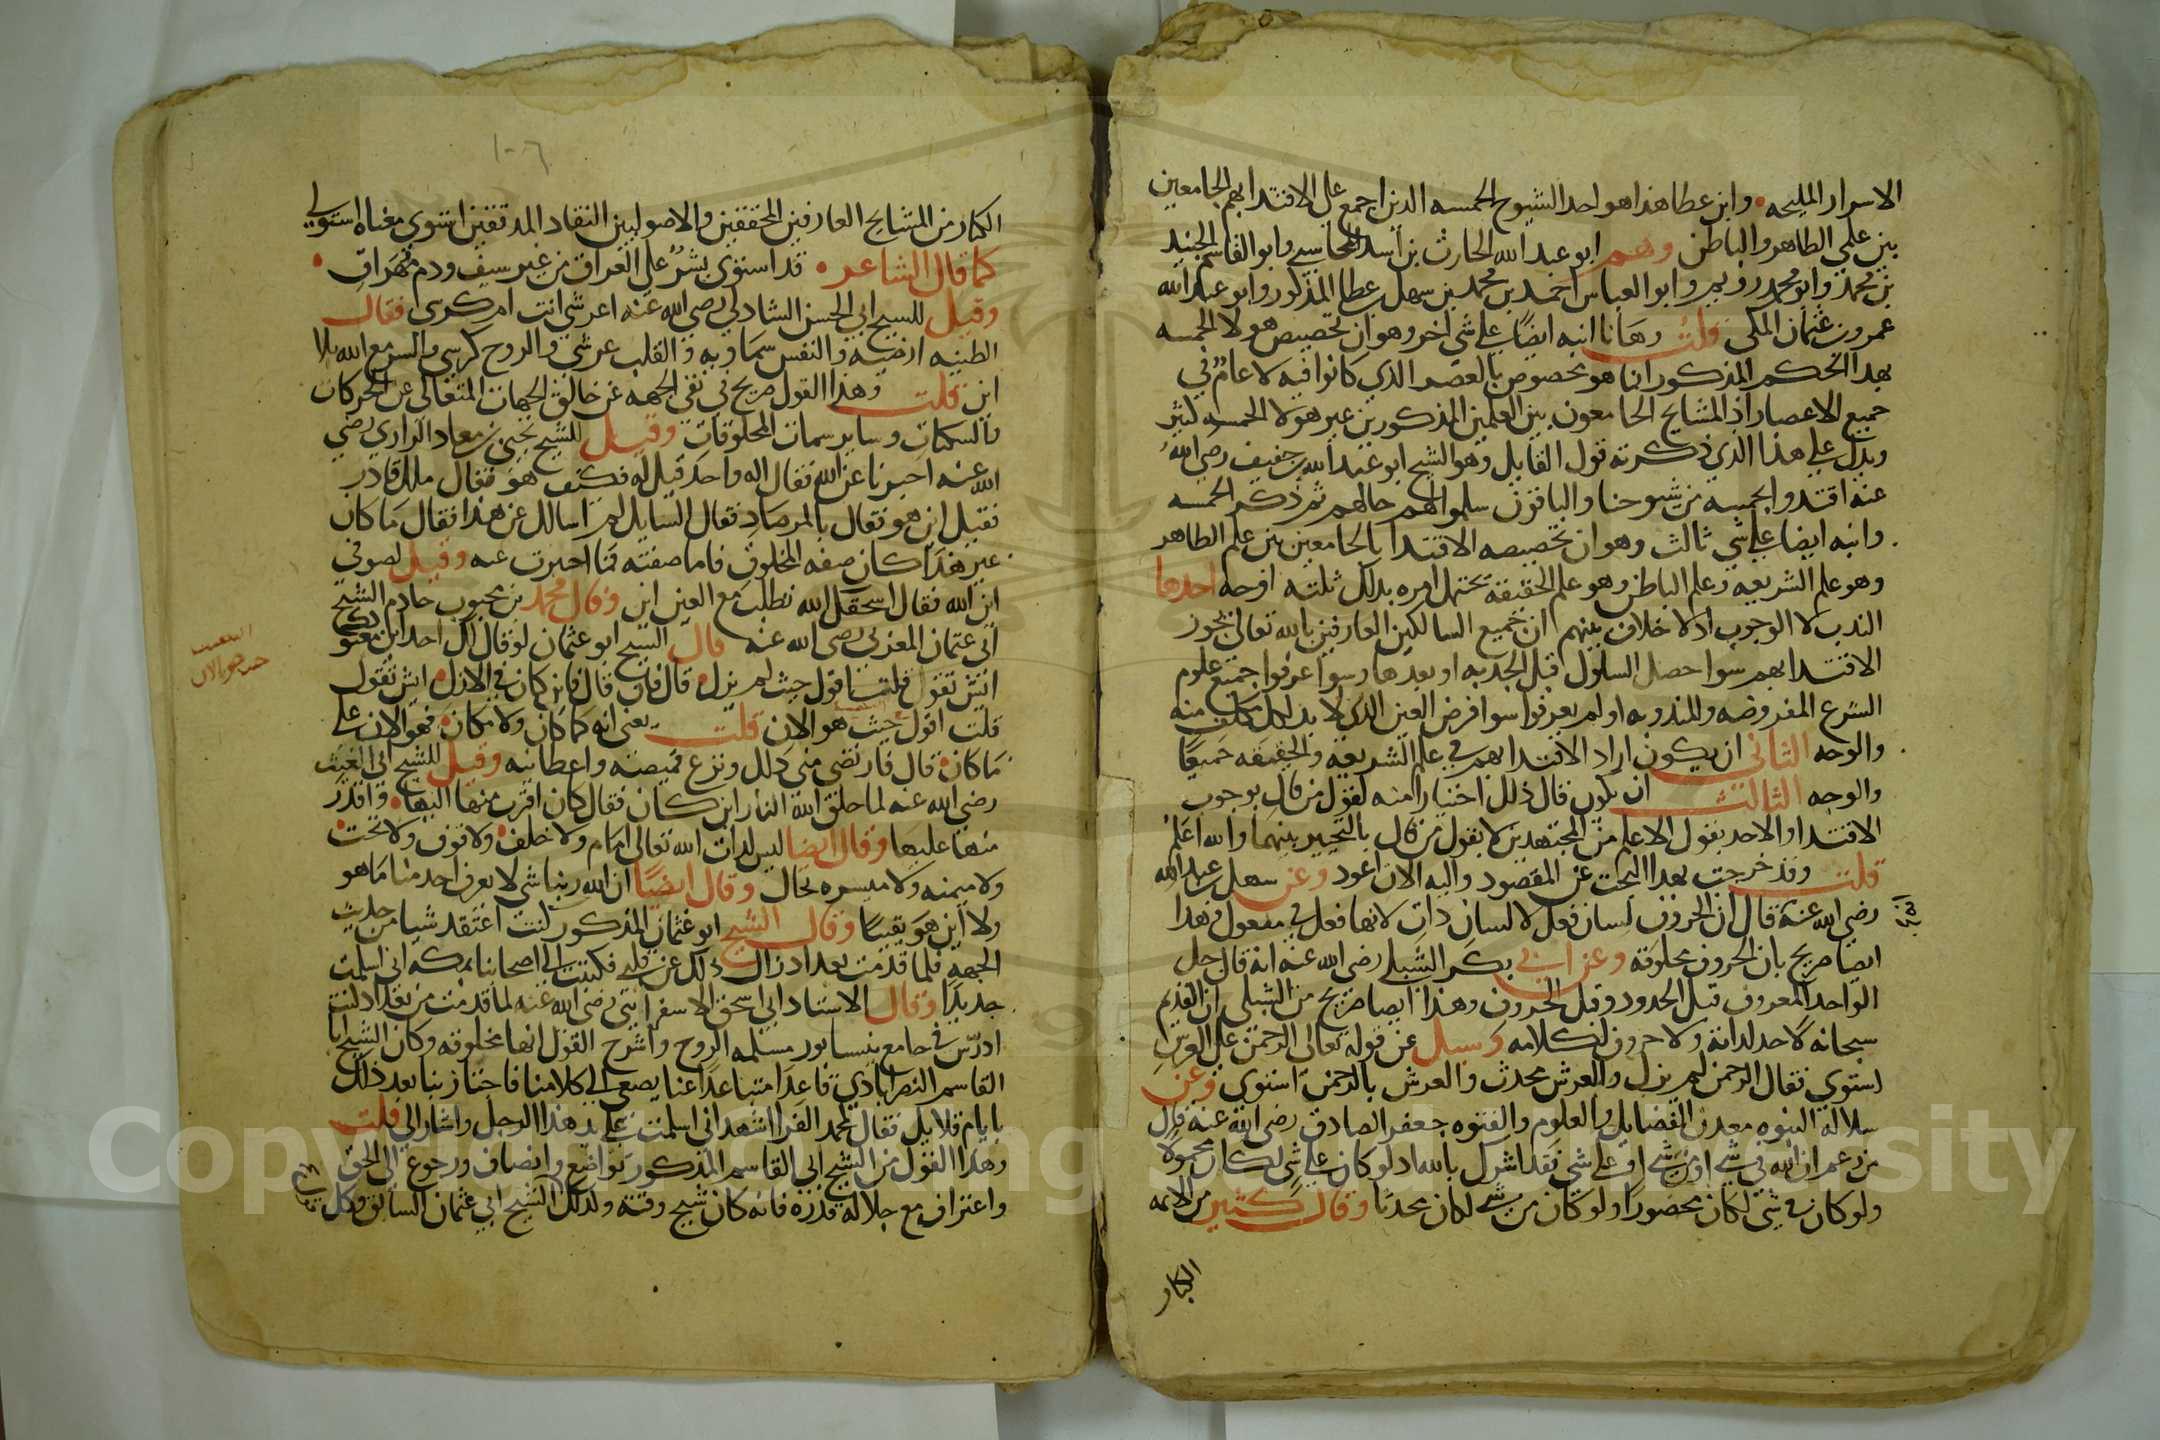 الاسرار المليحه • وابن عطا هذا هو احد الشيوخ الخمسه الذين اجمع على الاقتدا بهم الجامعين
بين علمي الظاهر والباطن وهم ابو عبد الله الحارث بن أسد المحاسبي وابو القاسم الجنيد
بن محمد وابو محمد رويم وابو العباس احمد بن محمد بن سهل بن عطا المذكور وابو عبد الله
عمرو بن عثمان المكي قلت وهانا انبه ايضا على شي اخر وهو ان تخصيص هولا الخمسه
بهذا الحكم المذكور انما هو مخصوص بالعصر الذي كانوا فيه لا عام في
جميع الاعصار اذ المشايخ الجامعون بين العلمين المذكورين غير هولا الخمسه كثير
ويدل على هذا الذي ذكرته قول القايل وهو الشيخ ابو عبد الله بن خفيف رضي الله
عنه اقتدوا بخمسه من شيوخنا والباقون سلموا لهم حالهم ثم ذكر الخمسه
وانبه ايضا على شي ثالث وهو ان تخصيصه الاقتدا بالجامعين بين علم الظاهر
وهو علم الشريعه وعلم الباطن وهو علم الحقيقة يحتمل امره بذلك ثلثة اوجه احدها
الندب لا الوجوب اذ لا خلاف بينهم ان جميع السالكين العارفين بالله تعالى يجوز
الاقتدا بهم سوا حصل السلوك قبل الجذبه او بعدها وسوا عرفوا جميع علوم
الشرع المفروضه والمندوبه او لم يعرفوا سوا فرض العين الذي لا بد لكل مكلف منه
والوجه الثاني ان يكون اراد الاقتدا بهم في علم الشريعة والحقيقه جميعا
والوجه الثالث ان يكون قال ذلك اختيارا منه لقول من قال بوجوب
الاقتدا والاخذ بقول الاعلم من المجتهدين لا بقول من قال بالتخيير بينهما والله اعلم
قلت وقد خرجت بهذا البحث عن المقصود واليه الان اعود وعن سهل بن عبد الله
رضي الله عنه قال ان الحروف لسان فعل لا لسان ذات لانها فعل في مفعول وهذا
ايضا صريح بان الحروف مخلوقه وعن ابي بكر الشبلي رضي الله عنه انه قال جل
الواحد المعروف قبل الحدود وقبل الحروف وهذا ايضا صريح من الشبلي ان القديم
سبحانه لا حد لذاته ولا حروف لكلامه وسيل عن قوله تعالى الرحمن على العرش
استوي فقال الرحمن لم يزل والعرش محدث والعرش بالرحمن استوي وعن
سلالة النبوه معدن الفضايل والعلوم والفتوه جعفر الصادق رضي الله عنه قال
من زعم ان الله في شي او من شي او على شي فقد اشرك بالله اذ لو كان على شي لكان محمولا
ولو كان في شي لكان محصورا ولو كان من شي لكان محدثا وقال كثير من الائمه
الكبار
١٠٦
الكبار من المشايخ العارفين المحققين والاصوليين النقاد المدققين استوى معناه استولى
كما قال الشاعر • قد استوى بشر على العراق من غير سيف ودم مهراق •
وقيل للشيخ ابي الحسن الشاذلي رضي الله عنه اعرشي انت ام كرسي فقال
الطينه ارضيه والنفس سماويه والقلب عرشي والروح كرسي والسر مع الله بلا
اين قلت وهذا القول صريح في نفي الجهه عن خالق الجهات المتعالي عن الحركات
والسكنات وساير سمات المخلوقات وقيل للشيخ يحيى بن معاذ الرازي رضي
الله عنه اخبرنا عن الله فقال اله واحد قيل له فكيف هو فقال ملك قادر
فقيل اين هو فقال بالمرصاد فقال السايل لم اسالك عن هذا فقال ما كان
غير هذا كان صفه المخلوق فاما صفته فما اخبرت عنه وقيل لصوفي
اين الله فقال اسحقك الله تطلب مع العين اين وقال محمد بن محبوب خادم الشيخ
ابي عثمان المغربي رضي الله عنه قال الشيخ ابو عثمان لو قال لك احد اين معبودك
ايش تقول قلت اقول حيث لم يزل • قال فان قال فاين كان في الازل • ايش تقول
قلت اقول حيث هو الان قلت يعني انه كما كان ولا مكان • فهو الان على
ما كان • قال فارتضى مني ذلك ونزع قميصه واعطانيه وقيل للشيخ ابي الغيث
رضي الله عنه لما خلق الله النار اين كان فقال كان اقرب منها اليها • واقدر
منها عليها وقال ايضا ليس لذات الله تعالى امام ولا خلف • ولا فوق ولا تحت •
ولا ميمنه ولا ميسره بحال وقال ايضا ان الله ربنا شي لا يعرف احد منا ما هو
ولا اين هو يقينا وقال الشيخ ابو عثمان المذكور كنت اعتقد شيا من حديث
الجهه فلما قدمت بغداد زال ذلك عن قلبي فكتبت الى اصحابنا بمكه اني اسلمت
جديدا وقال الاستاذ ابي اسحق الاسفرايني رضي الله عنه لما قدمت من بغداد كنت
ادرس في جامع نيسابور مسلمه الروح واشرح القول انها مخلوقه وكان الشيخ ابا
القاسم النصراباذي قاعدا متباعدا عنا يصغى الى كلامنا فاجتاز بنا بعد ذلك
بايام قلايل فقال لمحمد الفرا اشهد اني اسلمت على يد هذا الرجل واشار الي قلت
وهذا القول من الشيخ ابي القاسم المذكور تواضع وانصاف ورجوع الى الحق
واعتراف مع جلالة قدره فانه كان شيخ وقته ولذلك الشيخ ابي عثمان السابق وكل